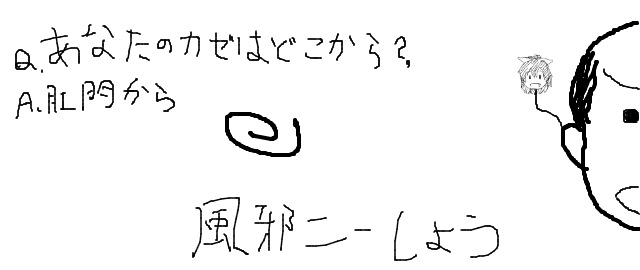 Q.あなたのカゼはどこから?
A.肛門から
風邪ニーしよう